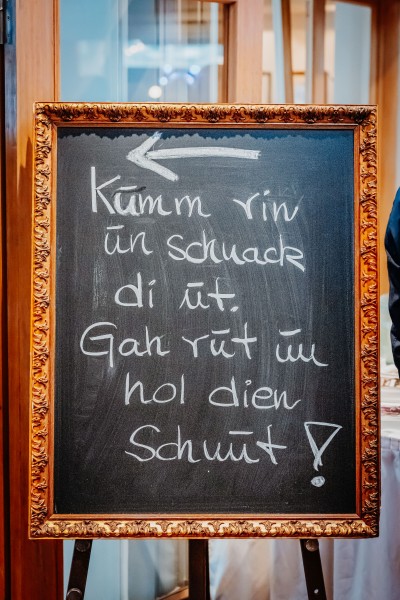 Kūmm rin
ūn schnack
di ūt.
Gah rūt ūn
hol dien
Schnūt!